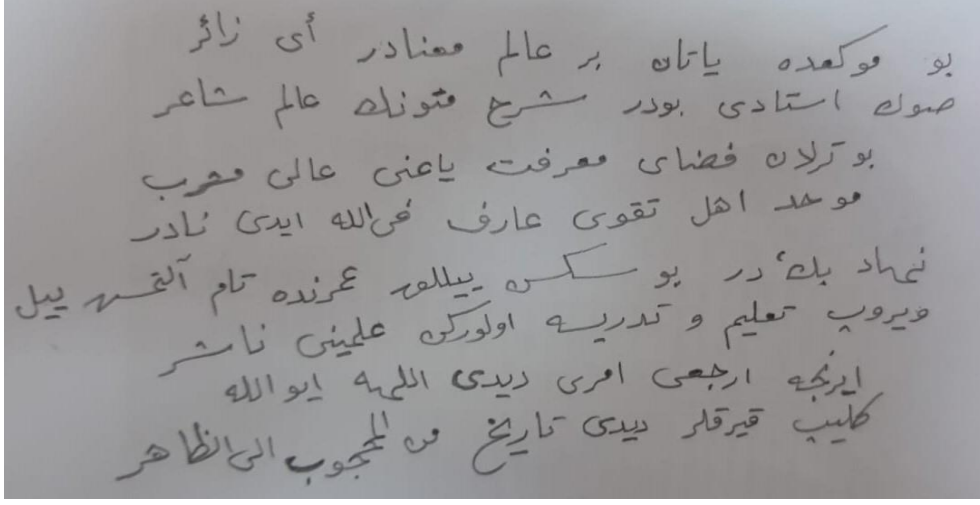 بو موكعده ياتان بر عالم معنادر أى زائر
صوك استادى بودر شرح متونك عالم شاعر
بو ترلان فضاى معرفت ياعنى عالى مشرب
موحد اهل تقوى عارف فى الله ايدى نادر
نهاد بك در بو سكسن ييللق عمرنده تام آلتمش ييل
ويروب تعليم و تدريسه اولوركن علمينى ناشر
ايرنجه ارجعى امرى ديدى اللهه ايوالله
كليب قيرقلر ديدى تاريخ من المحجوب الى الظاهر